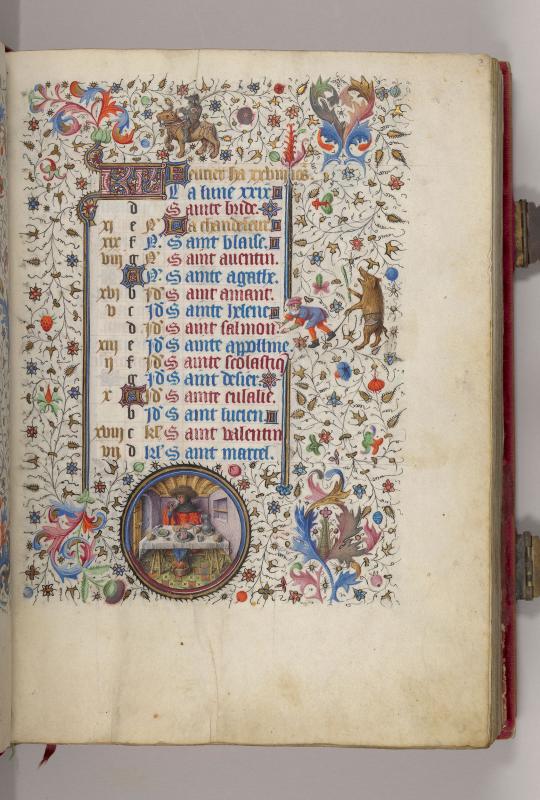 KL feurier ha xxviii iors.
La lune xxix
d Sainte bride.
xi e N La chandeleur
xix f N. Saint blaise.
viii g N Saint auentin.
A N. Sainte agathe.
xvi b Id Saint amant.
v c Id Sainte helene
d Id Saint salmon.
xiii e Id Sainte appoline
ii f Id Sainte scolastiq
g Id Saint desier.
x A Id Sainte eulalie.
b Id Saint lucien.
xviii c Kl Saint valentin
vii d Kl Saint marcel.